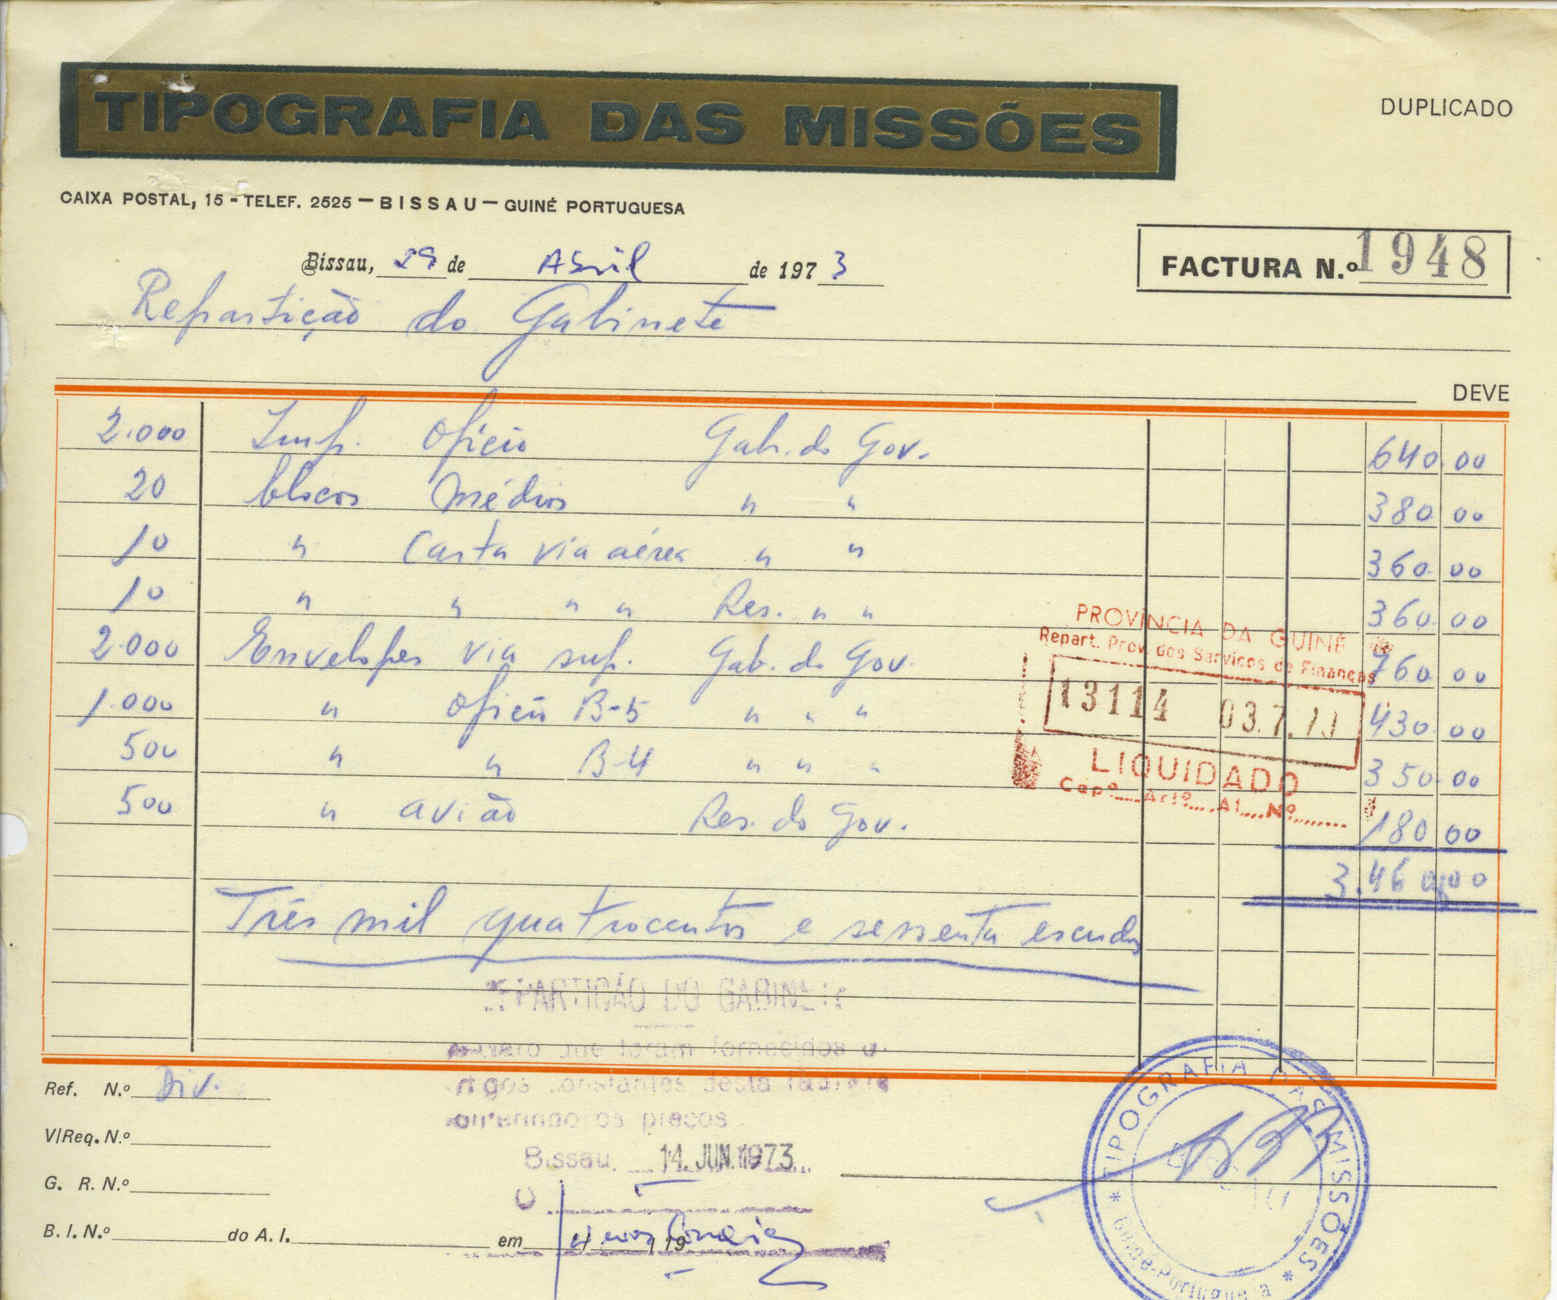 TIPOGRAFIA DAS MISSÕES
DUPLICADO
CAIXA POSTAL, 15 - TELEF. 2525 — BISSAU — GUINÉ PORTUGUESA
FACTURA N.º 1948
Bissau, 29 de Abril de 1973
Repartição do Gabinete
DEVE
2.000 Imp. Ofício Gab. do Gov. 640.00
20 blocos Médios " " 380.00
10 " Carta via aérea " " 360.00
10 " " " " Res. " " 360.00
2.000 Envelopes via sup. Gab. do Gov. 760.00
1.000 " Ofício B-5 " " " 430.00
500 " " B-4 " " " 350.00
500 " avião Res. do Gov. 180.00
3.460,00
Três mil quatrocentos e sessenta escudos
PROVÍNCIA DA GUINÉ
Repart. Prov. dos Serviços de Finanças
13114 03.7.73
LIQUIDADO
Capº Artº Al. Nº
REPARTIÇÃO DO GABINETE
que foram fornecidos
constantes desta factura
os preços
Bissau, 14. JUN. 1973
Ref. N.º Div.
V/Req. N.º
G. R. N.º
B. I. N.º do A. I. em 19
TIPOGRAFIA DAS MISSÕES
BISSAU
Guiné Portuguesa